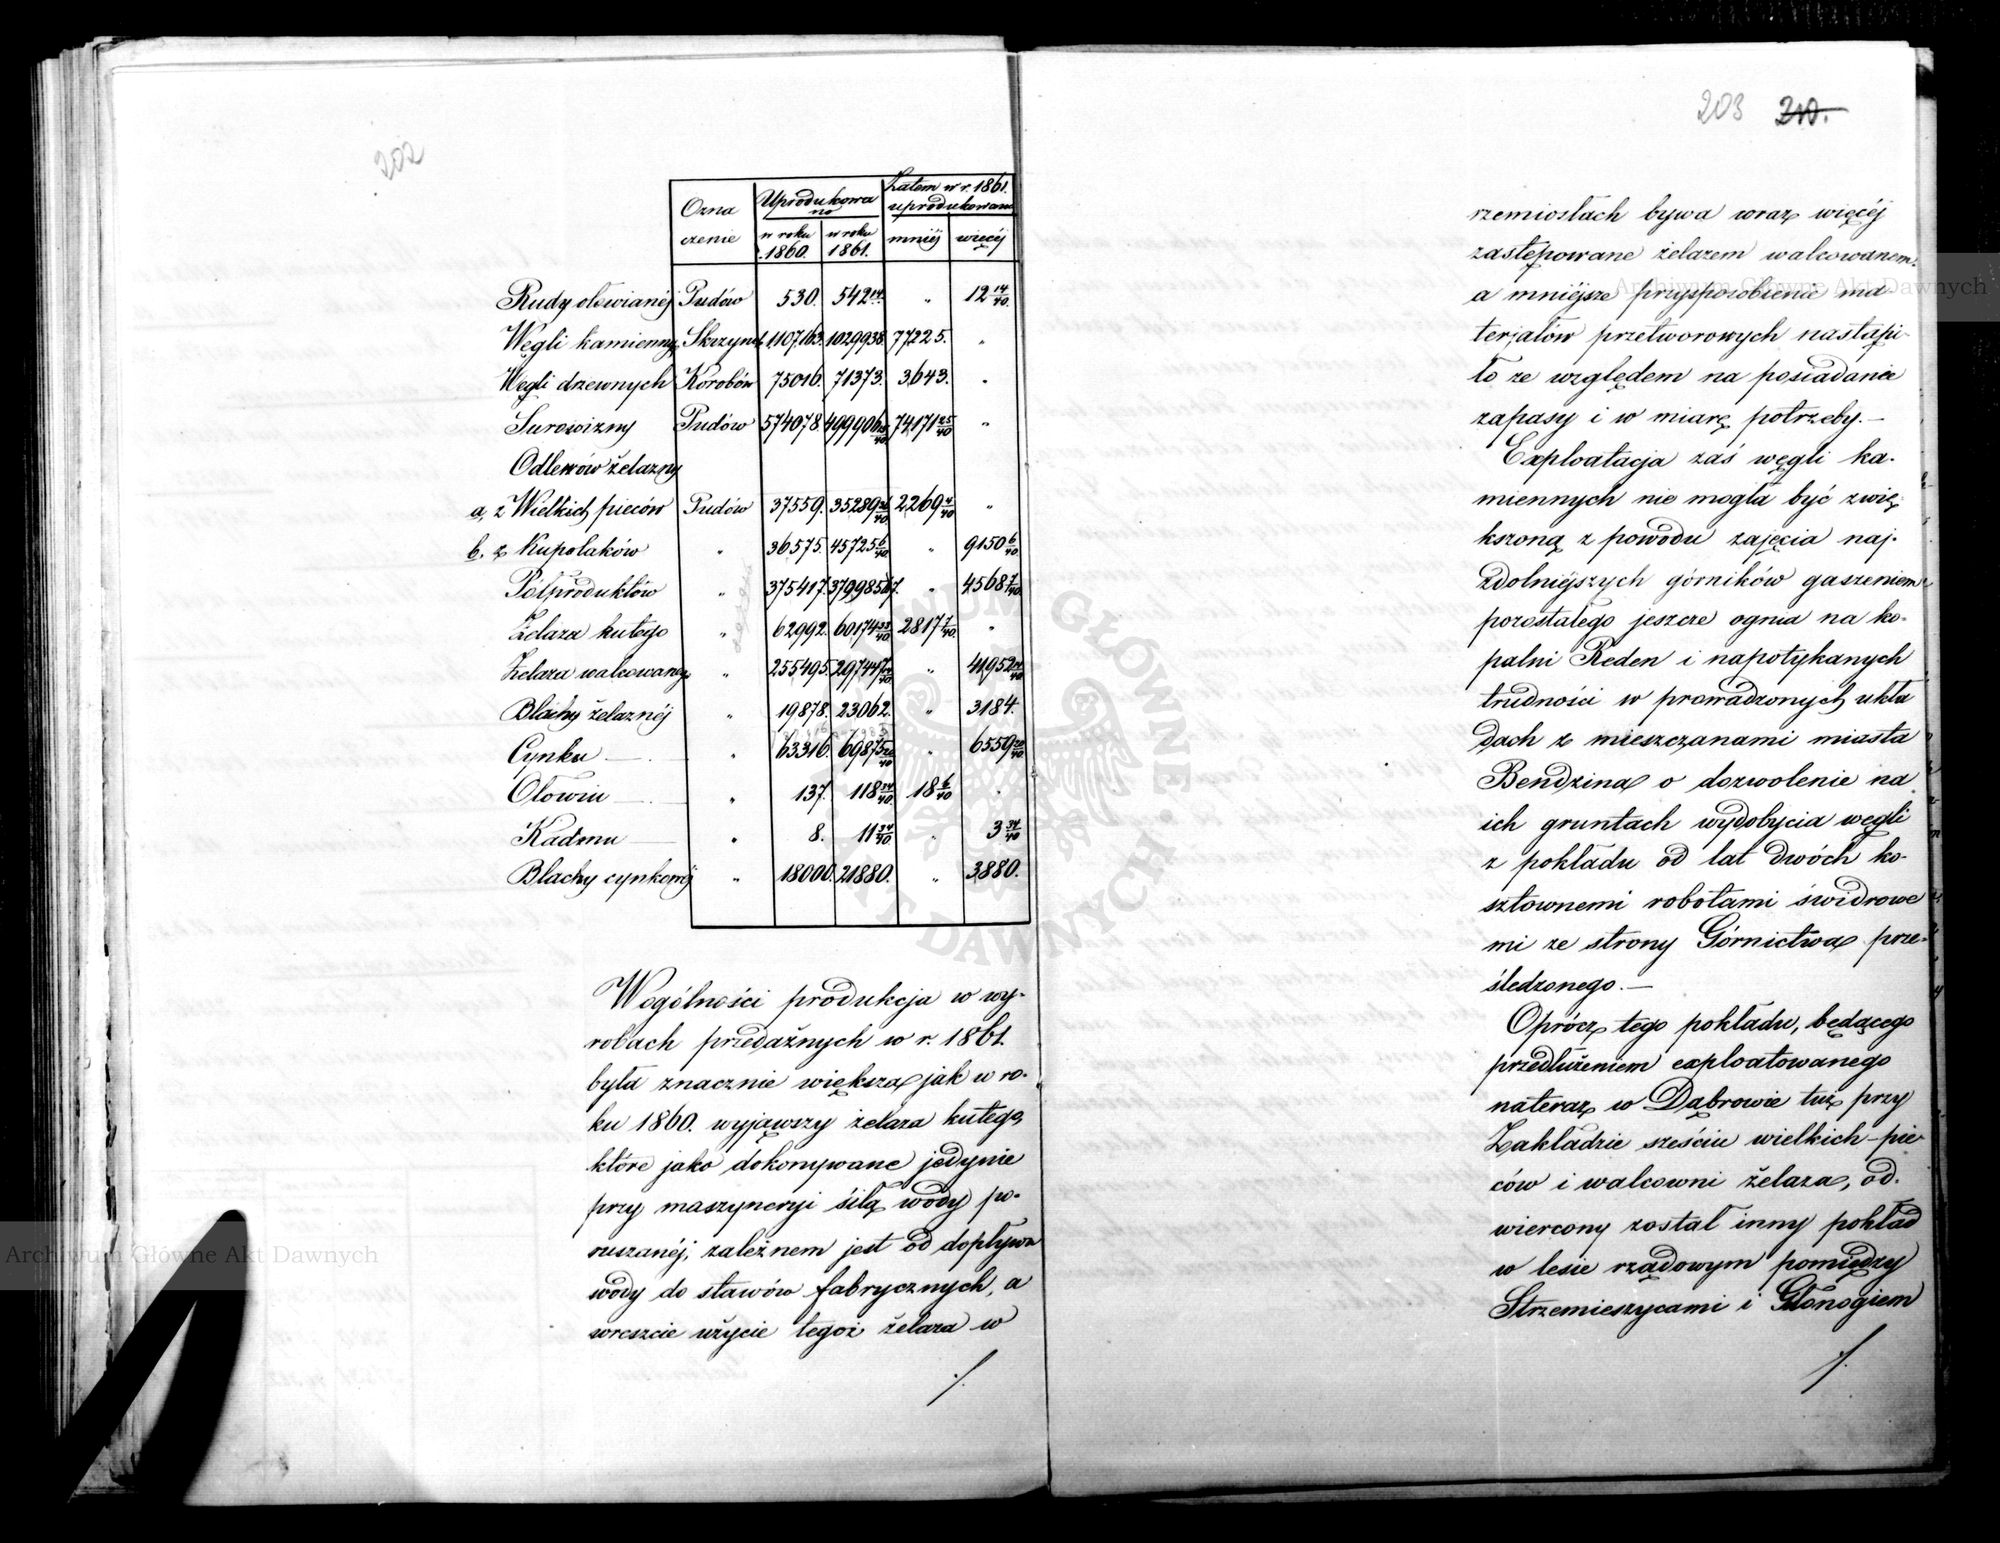 202
Ozna
czenie
Uprodukowa
no
w roku
1860.
w roku
1861.
Zatem w r. 1861.
uprodukowano
mniéj
więcéj
Rudy ołowianéj Pudów 530. 542 14/40 " 12 14/40
Węgli kamienny Skrzyn 1,107,163. 1029938. 77,225. "
Węgli drzewnych Korobów 75016. 71373. 3,643. "
Surowizny Pudów 574078. 499906 15/40 74,171 25/40 "
Odlewów żelazny
a, z Wielkich pieców Pudów 37559. 35289 36/40 2,269 4/40 "
b. z Kupolaków " 36575. 45725 6/40 " 9150 6/40
Półproduktów " 375417. 379985 7/40 " 4,568 7/40
Żelaza kutego " 62992. 60174 33/40 2817 7/40 "
Żelaza walcowaneg " 255495. 297447 24/40 " 41,952 24/40
Blachy żelaznéj " 19878. 23062. " 3184.
Cynku " 63316. 69875 20/40 " 6559 20/40
Ołowiu " 137. 118 34/40 18 6/40 "
Kadmu " 8. 11 34/40 " 3 34/40
Blachy cynkowéj " 18000. 21880. " 3,880.
Wogólności produkcja w wy-
robach przedażnych w r. 1861.
była znacznie większa jak w ro-
ku 1860. wyjąwszy żelaza kutego,
które jako dokonywane jedynie
przy maszyneryi siłą wody po-
ruszanéj, zależnem jest od dopływu
wody do stawów fabrycznych, a
wreszcie użycie tegoż żelaza w
/.
203 210.
rzemiosłach bywa wraz więcéj
zastępowane żelazem walcowanem.
a mniejsze przysposobienie ma-
terjałów przetworowych nastąpi-
ło ze względem na posiadanie
zapasy i w miarę potrzeby.—
Exploatacja zaś węgli ka-
miennych nie mogła być zwię
kszoną z powodu zajęcia naj-
zdolniejszych górników gaszeniem
pozostałego jeszcze ognia na ko-
palni Reden i napotykanych
trudności w prowadzonych ukła
dach z mieszczanami miasta
Bendzina o dozwolenie na
ich gruntach wydobycia węgli
z pokładu od lat dwóch ko-
sztownemi robotami świdrowe
mi ze strony Górnictwa prze-
śledzonego.—
Oprócz tego pokładu, będącego
przedłużeniem exploatowanego
nateraz w Dąbrowie tuż przy
Zakładzie sześciu wielkich pie-
ców i walcowni żelaza, od-
wiercony został inny pokład
w lesie rządowym pomiędzy
Strzemieszycami i Gołonogiem
/.
Archiwum Główne Akt Dawnych
Archiwum Główne Akt Dawnych
ARCHIWUM GŁÓWNE AKT DAWNYCH